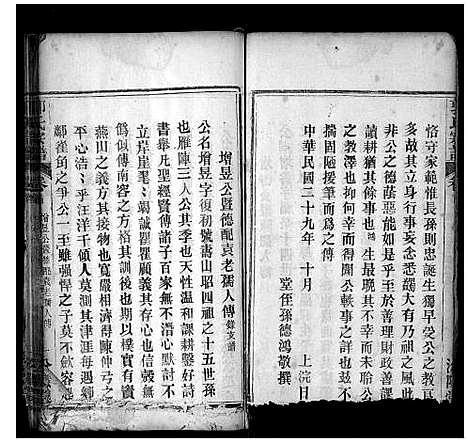 恪守家範惟長孫則忠誕生獨早受公之教育
多故其立身行事妄念悉蠲大有乃祖之風此
非公之德蔭惡能如是乎至於善理財政樂善
讀耕猶其餘事也 生最晚其不幸而未聆公
之教澤也抑何幸而得聞公軼事之詳也茲不
揣固陋援筆而為之傳
中華民國二十九年 十月 上浣日
堂任孫德鴻敬撰
增昱公暨德配袁老孺人傳
公名增昱字復初號嵩山昭四祖之十五世孫
也雁陳三人公其季也天性溫和謀猷好學經
書舉凡聖經賢傳諸子百家無不潛心默討不
立岸崖竭誠瞿瞿顧義其存心也信殼無
偽似述傳南容之方格其訓後也實有竇
燕山之義方其接物也寬洪海量有陳仲弓之
平心浩乎汪洋千傾人莫測其津涯每遇鄉
鄰雀角之爭公一至雖强悍之子莫不斂容忍